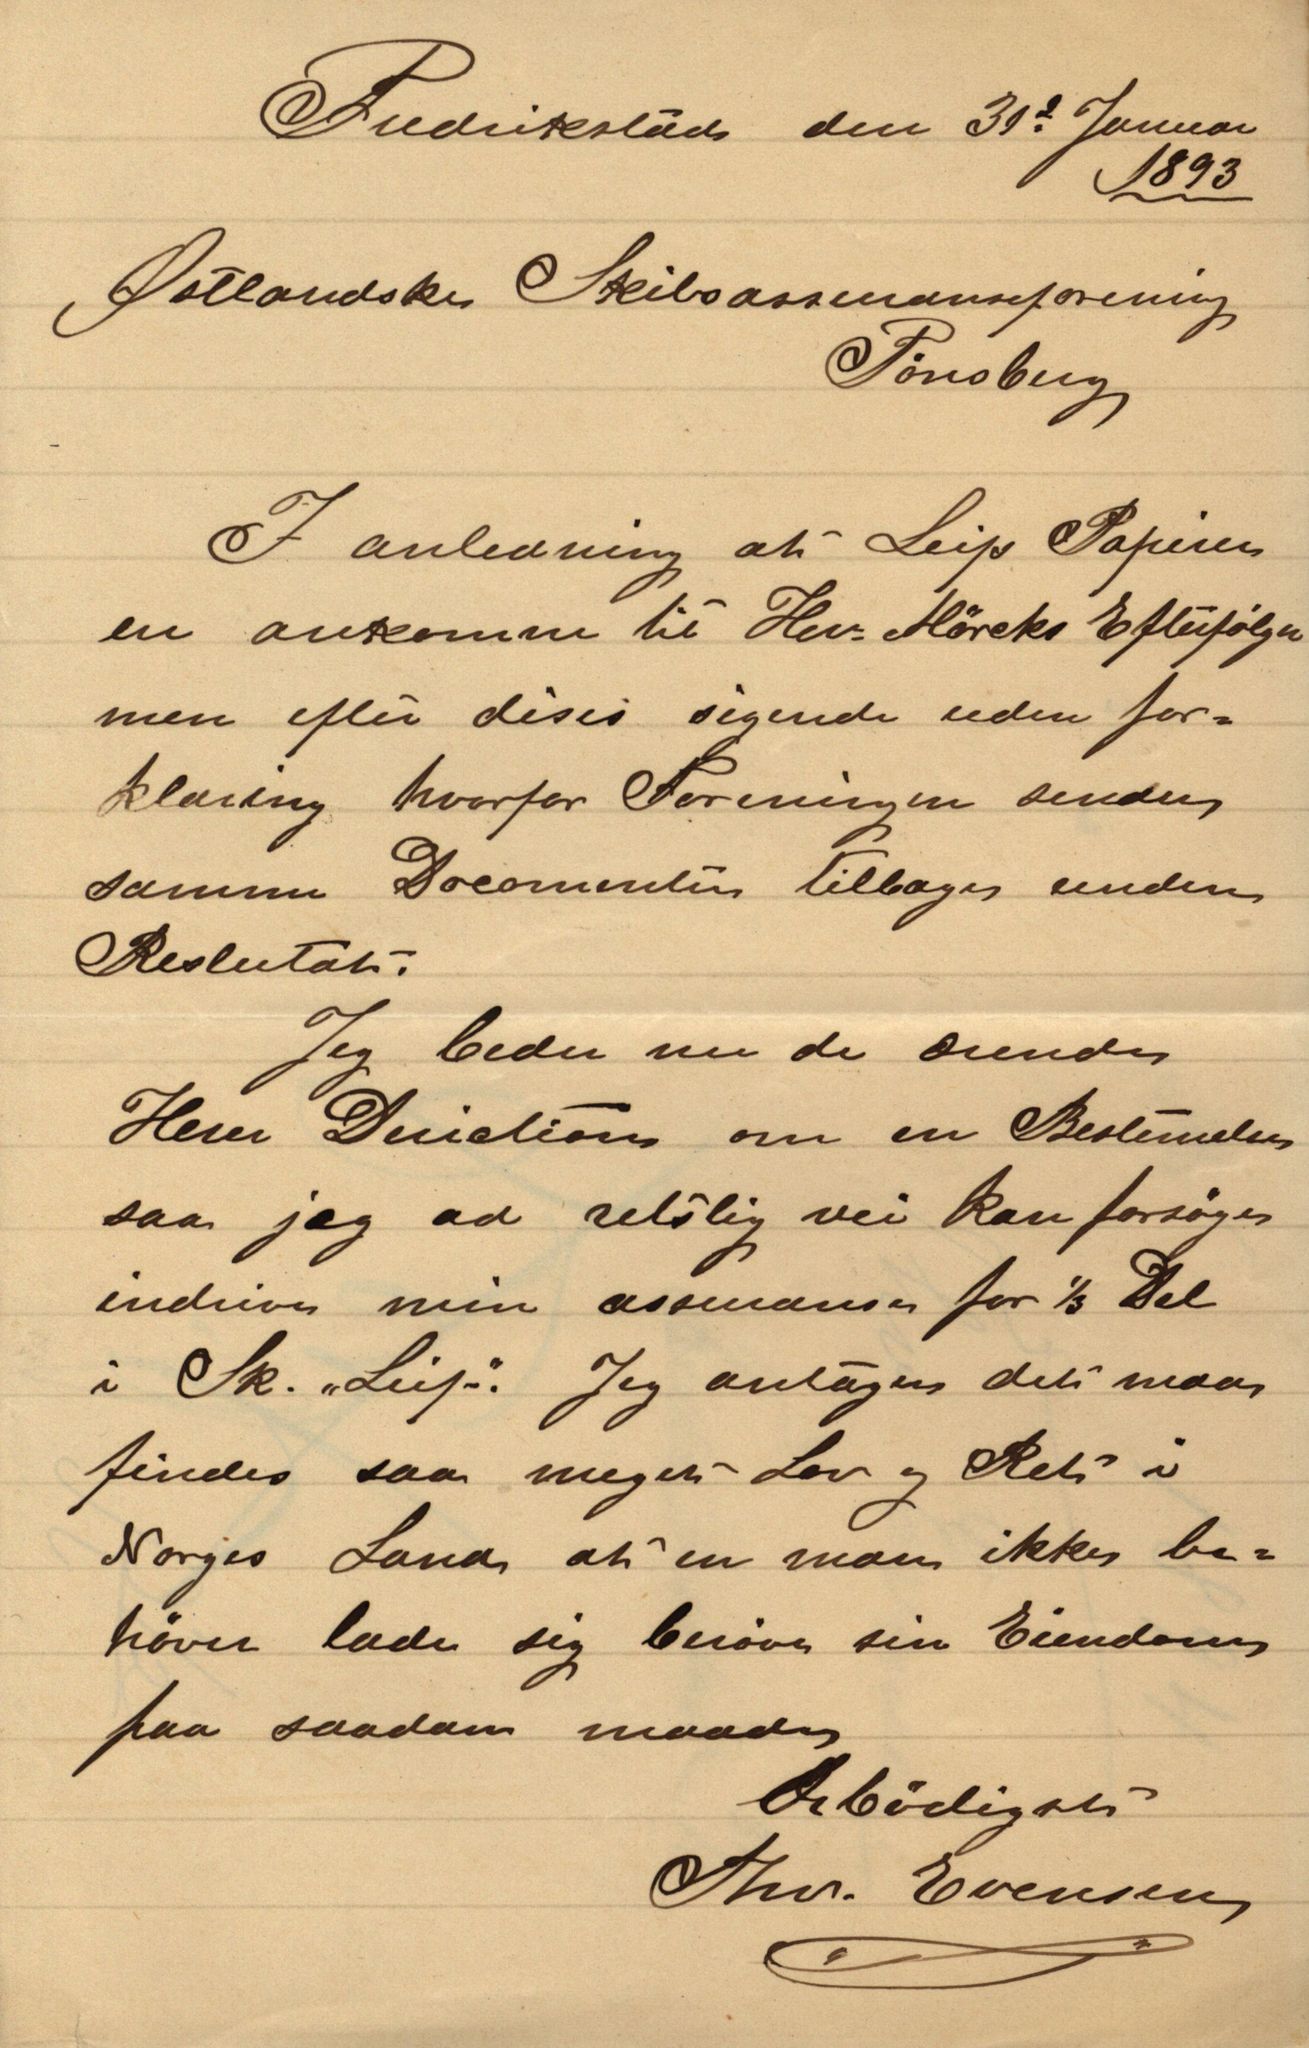 Fredrikstad den 31? Januar
1893
Østlandske Skibsassuranseforening
Tönsberg
I anledning at Leifs Papirer
er ankomne til Her: Mörcks Efterfölger
men efter disses sigende uden for=
klaring hvorfor Foreningen sender
samme Documenter tilbage uden
Reslutat.
Jeg beder nu de ærende
Herer Direction om en Bestemelse
saa jeg ad retslig vei kan forsöge
indrive min assuranse for 1/3 Del
i Sk. „Leif". Jeg antager det maa
findes saa meget Lov og Ret i
Norges Land at en man ikke be=
höver lade sig beröve sin Eiendom
paa saadan maade
Ærbödigst
Thv. Evensen